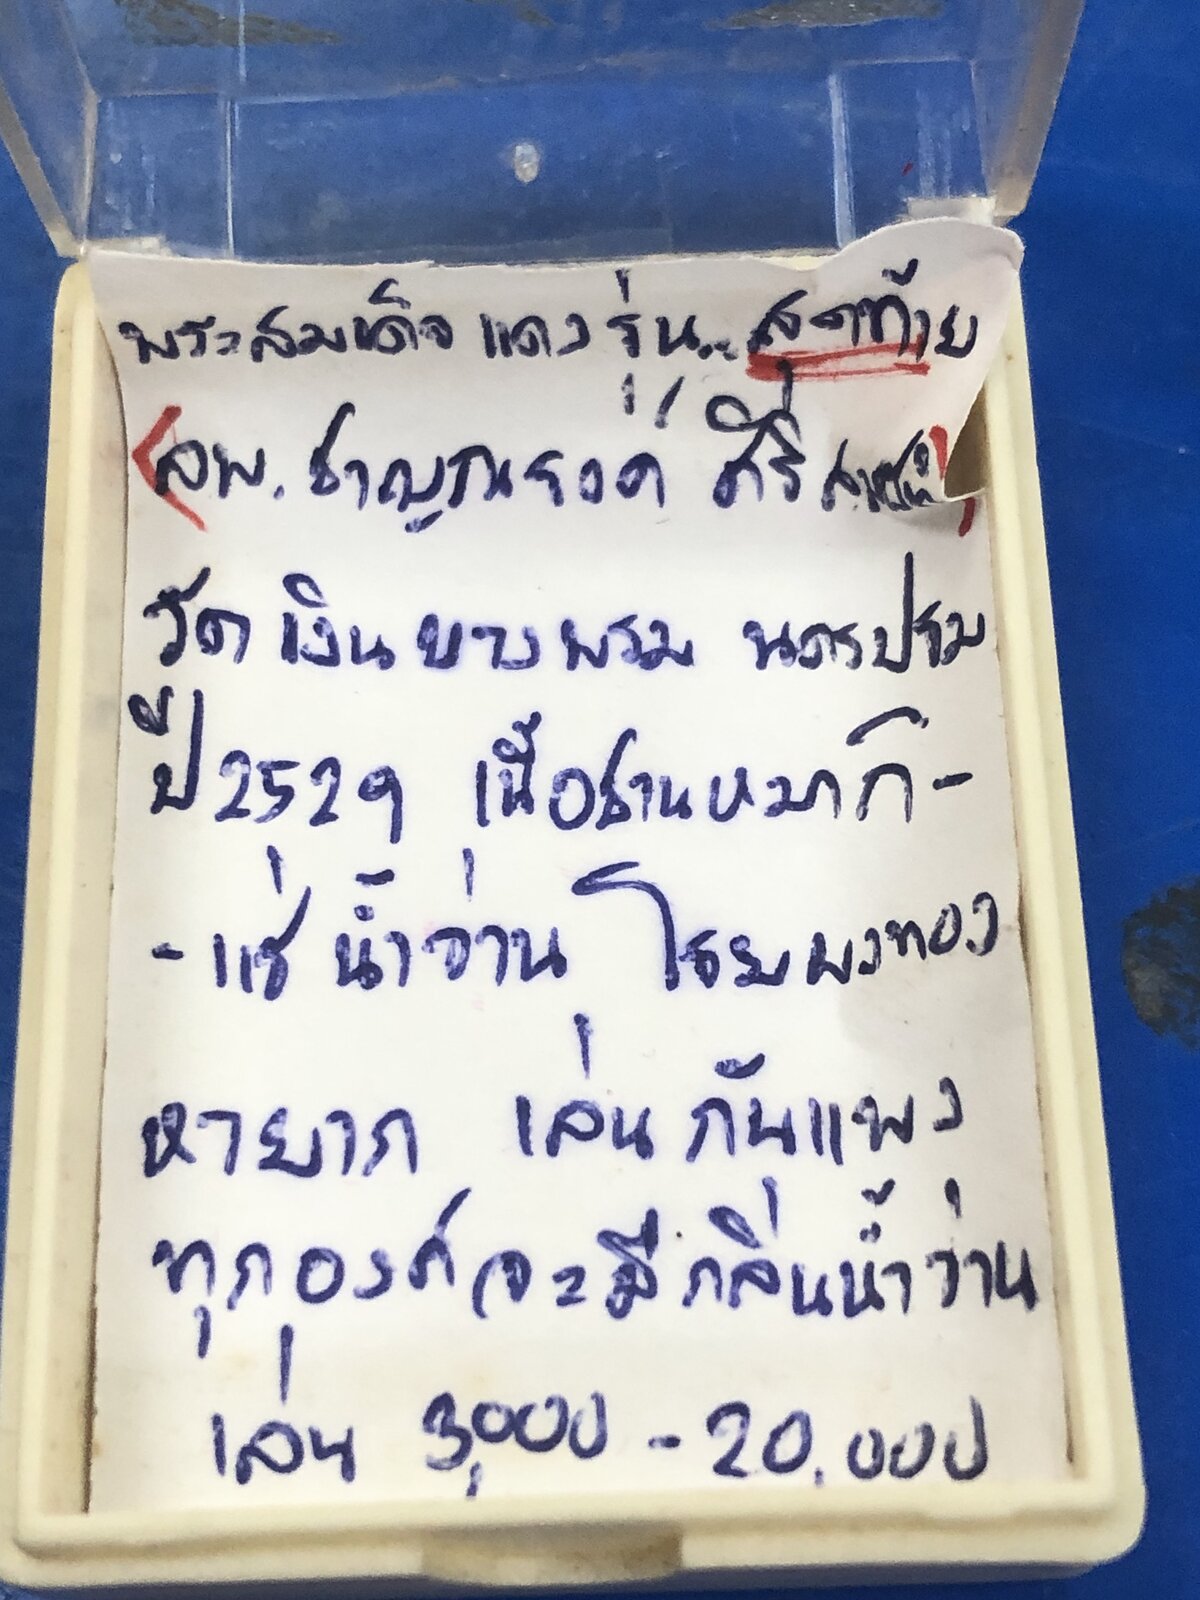 พระสมเด็จ แดง รุ่น.. สุดท้าย
ลพ. ชาญณรงค์ ศิริ
วัด เงิน บางพรม นครปฐม
ปี 2529 เนื้อชานหมาก -
- แช่ น้ำว่าน โรยผงทอง
หายาก เล่น กันแพง
ทุกองค์ จะมี กลิ่นน้ำว่าน
เล่น 3,000 - 20,000